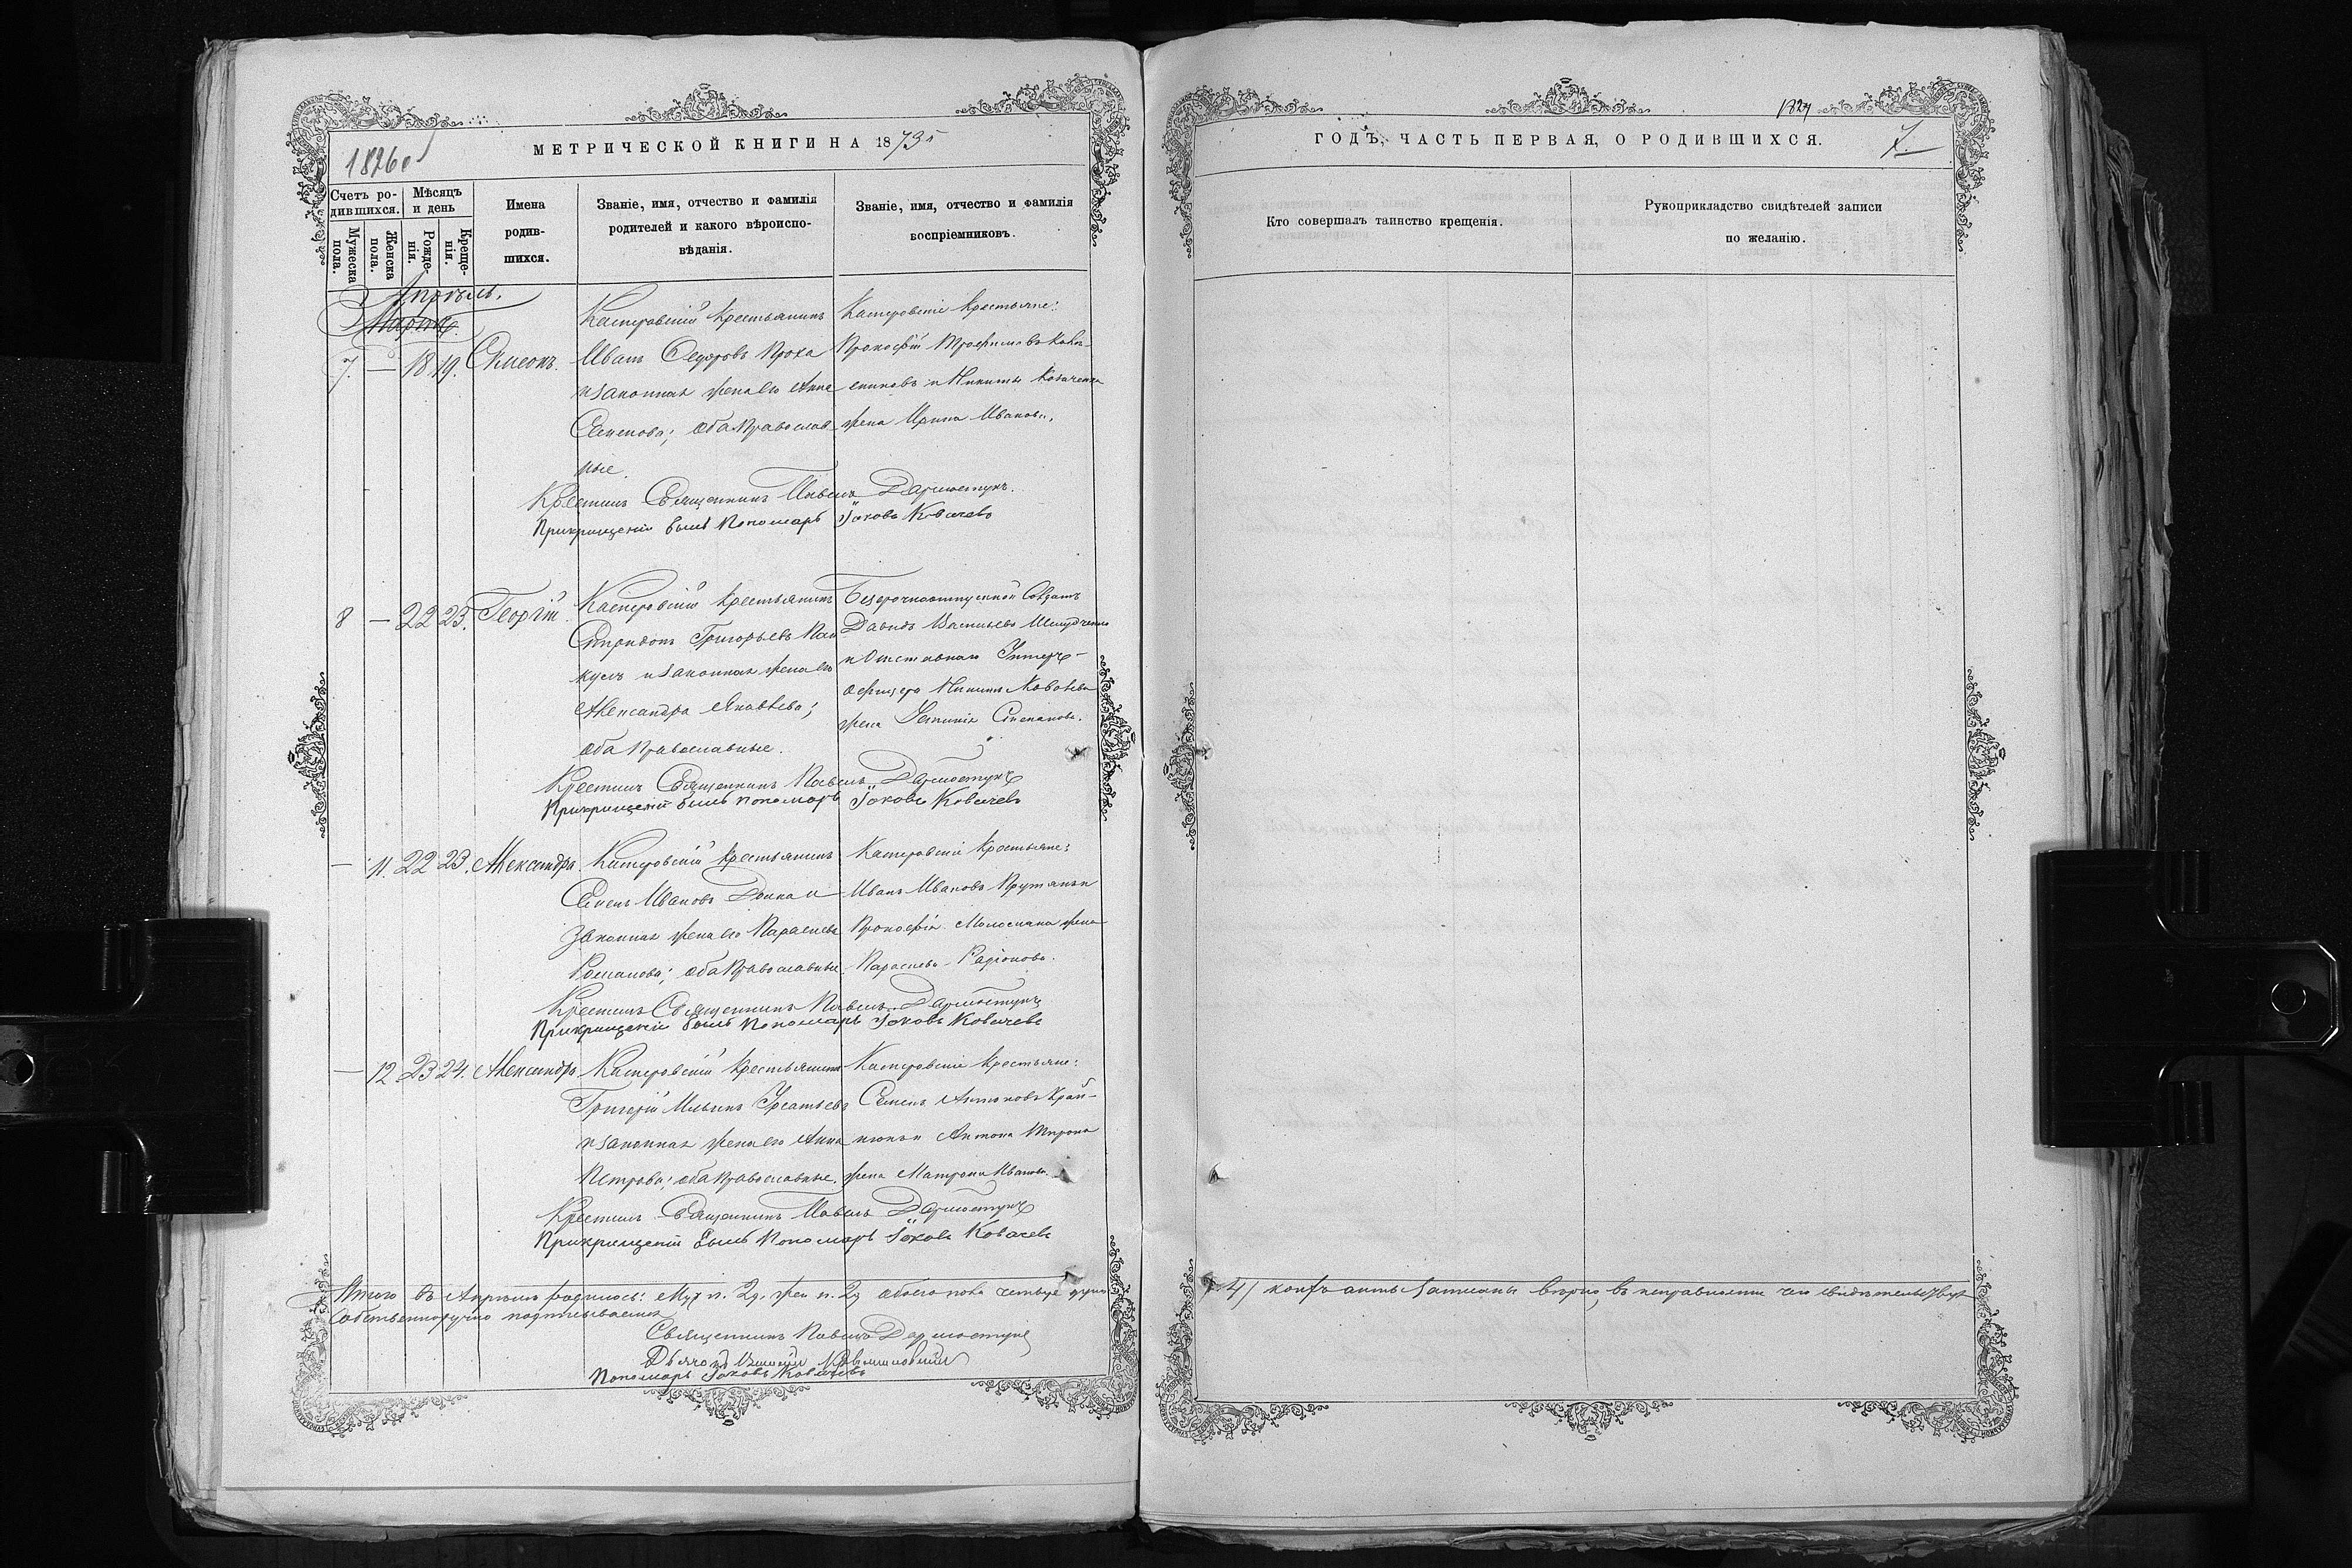 1826об
МЕТРИЧЕСКОЙ КНИГИ НА 1873й
Счетъ ро-
дившихся.
Мужеска
пола.
Женска
пола.
Мѣсяцъ
и день
Рожде-
нія.
Креще-
нія.
Имена
родив-
шихся.
Званіе, имя, отчество и фамилія
родителей и какого вѣроиспо-
вѣданія.
Званіе, имя, отчество и фамилія
воспріемниковъ.
Апрѣль.
Мартъ.
7. — 18 19. Симеонъ.
Касперовскій крестьянинъ
Иванъ Федоровъ Проха
и законная жена его Анна
Семенова; оба православ-
ные.
Касперовскіе крестьяне:
Прокофій Трофимовъ
и Никиты Козаченка
жена Ирина Иванова.
Крестилъ Священникъ Павелъ Дармостукъ.
При крещеніи былъ Пономарь Іаковъ Ковачевъ
8 — 22 23. Георгій.
Касперовскій крестьянинъ
Спиридонъ Григорьевъ Пан-
и законная жена его
Александра Яковлева;
оба православные.
Безсрочноотпускной Солдатъ
Давидъ Васильевъ
и Отставнаго Унтеръ-
офицера Никиты
жена Устинія Степанова.
Крестилъ Священникъ Павелъ Дармостукъ
При крещеніи былъ пономарь Іаковъ Ковачевъ
— 11. 22 23. Александра.
Касперовскій крестьянинъ
Семенъ Ивановъ Донка и
законная жена его Параскева
Романова; оба православные.
Касперовскіе крестьяне:
Иванъ Ивановъ
Прокофія жена
Параскева Радіонова.
Крестилъ Священникъ Павелъ Дармостукъ
При крещеніи былъ Пономарь Іаковъ Ковачевъ
— 12 23 24. Александра
Касперовскій крестьянинъ
Григорій Ильинъ
и законная жена его Анна
Петрова; оба православные.
Касперовскіе крестьяне:
Семенъ Антоновъ Край-
и Антона
жена Матрона Иванова.
Крестилъ Священникъ Павелъ Дармостукъ
При крещеніи былъ Пономарь Іаковъ Ковачевъ
Итого въ Апрѣлѣ родилось: муж. п. 2, жен. п. 2, обоего пола четыре души
Собственноручно подписываемся
Священникъ Павелъ Дармостукъ
Дьячокъ
Пономарь Іаковъ Ковачевъ
1827
ГОДЪ, ЧАСТЬ ПЕРВАЯ, О РОДИВШИХСЯ.
7.
Кто совершалъ таинство крещенія.
Рукоприкладство свидѣтелей записи
по желанію.
акты записаны вѣрно, въ исправности чего свидѣтельствую